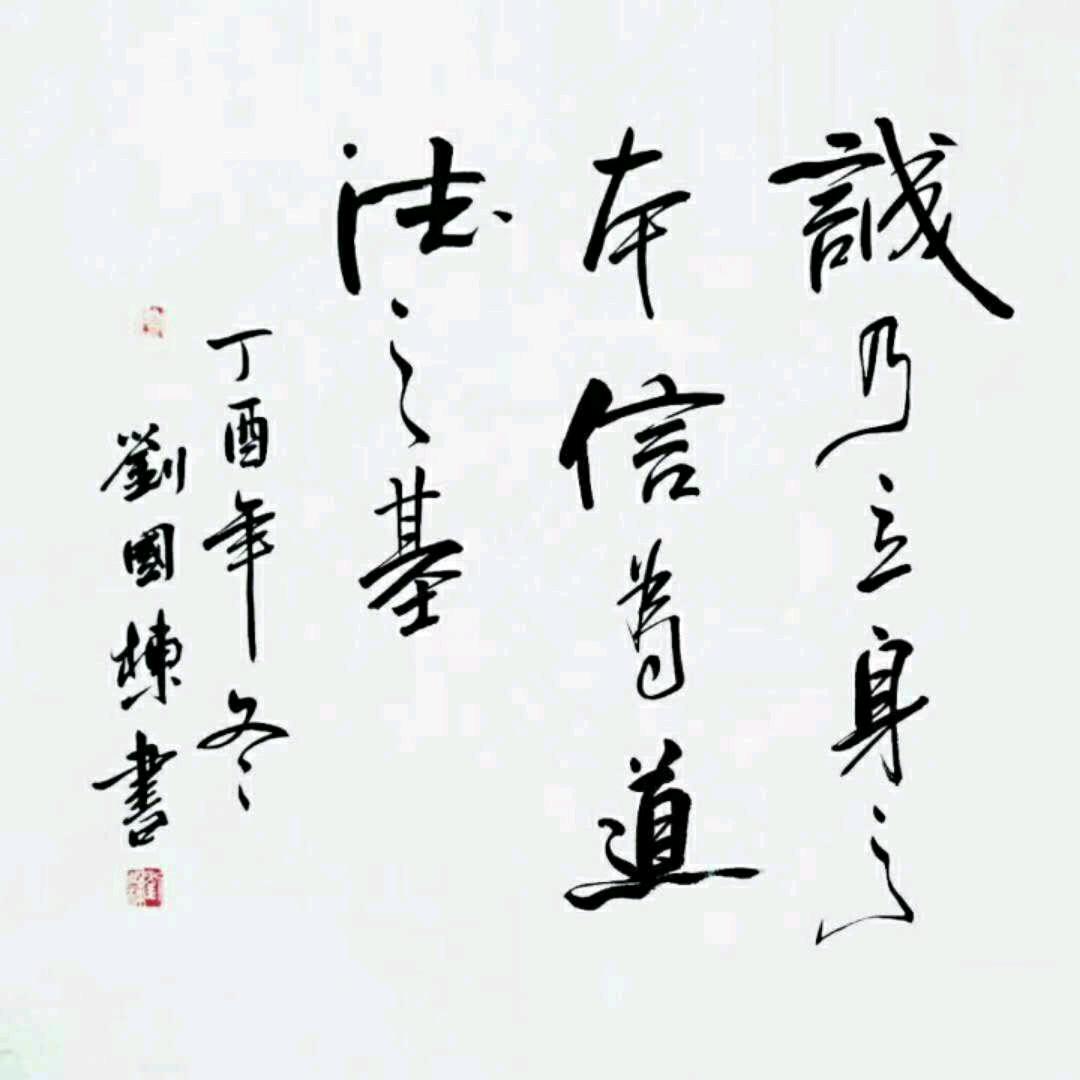 誠乃立身之
本信為道
德之基
丁酉年冬
劉國棟書